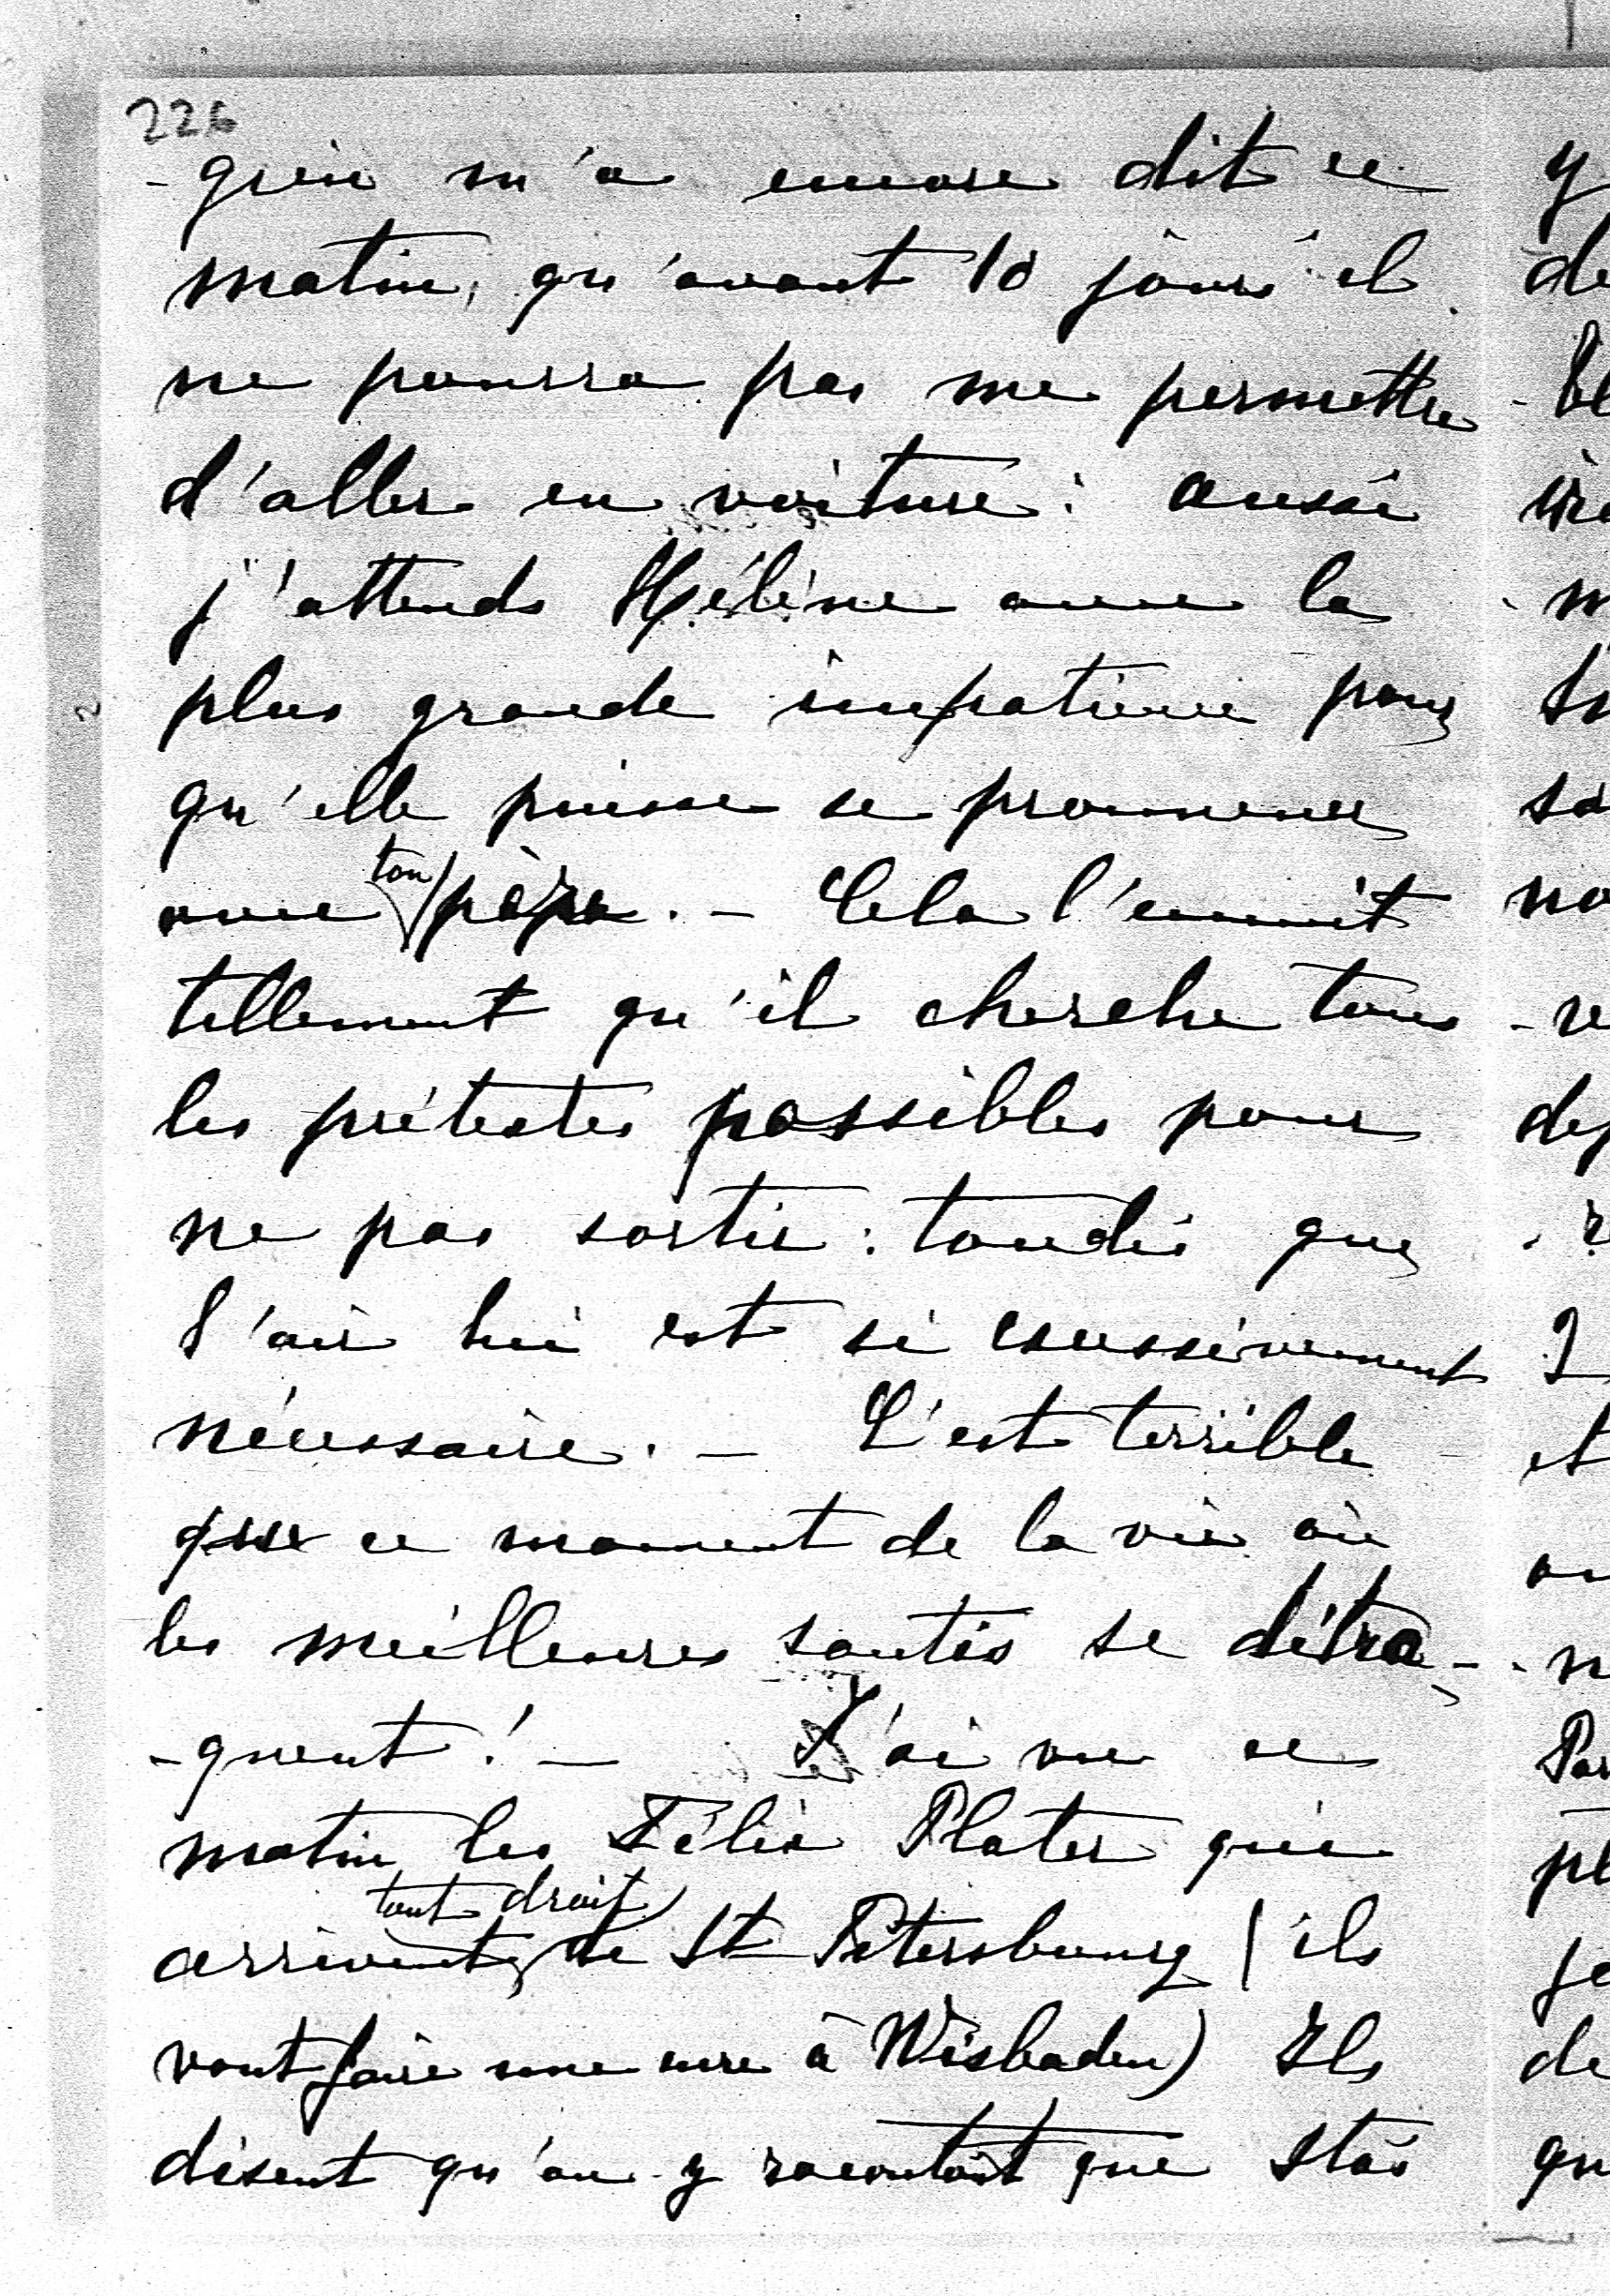 226
-grin m'a encore dit ce
matin, qu'avant 10 jours il
ne pourra pas me permettre
d'aller en voiture : aussi
j'attends Hélène avec la
plus grande impatience pour
qu'elle puisse se promener
avec ton père. – Cela l'ennuit
tellement qu'il cherche tous
les prétextes possibles pour
ne pas sortir : tandis que
l'air lui est si excessivement
nécessaire. – C'est terrible
que ce moment de la vie où
les meilleures santés se détra-
-quent ! – J'ai vu ce
matin les Félix Plater qui
arrivent tout droit de St Pétersbourg (ils
vont faire une cure à Wisbaden) Ils
disent qu'on y racontait que Stas